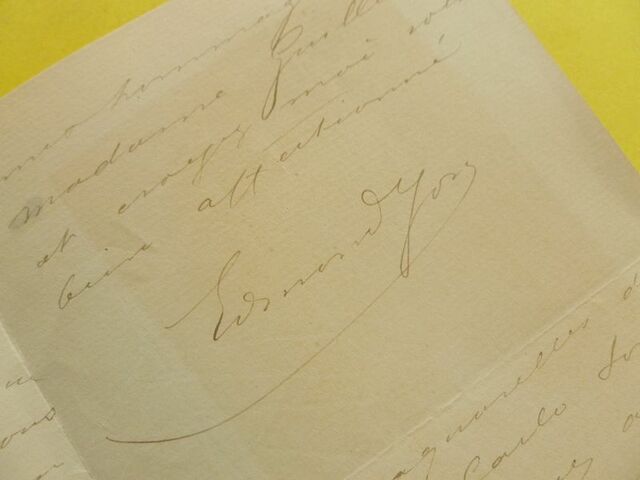 mes hommag
madame Guille
et croyez moi vo
bien affectionné
Edmond Yon
aquarelles d
Carlo